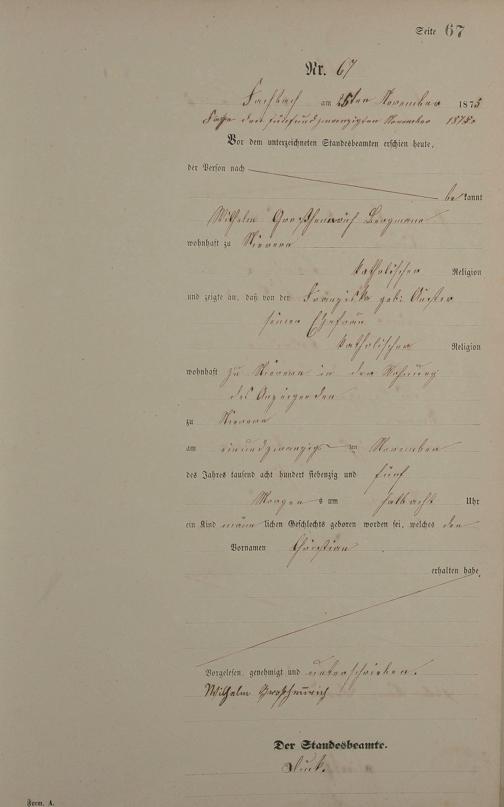 Seite 67
Nr. 67
Fachbach am 25ten November 1875
den fünfundzwanzigten November 1875.
Vor dem unterzeichneten Standesbeamten erschien heute,
der Person nach
bekannt
Wilhelm Großheinrich Bergmann
wohnhaft zu Nievern
katholischer Religion
und zeigte an, daß von der Franziska geb:
seiner Ehefrau
katholischer Religion
wohnhaft zu Nievern in der Wohnung
des Anzeigenden
zu Nievern
am einundzwanzigten November
des Jahres tausend acht hundert siebenzig und fünf
Morgens um halbacht Uhr
ein Kind männlichen Geschlechts geboren worden sei, welches den
Vornamen Christian
erhalten habe
Vorgelesen, genehmigt und unterschrieben.
Wilhelm Großheinrich
Der Standesbeamte.
Form. A.